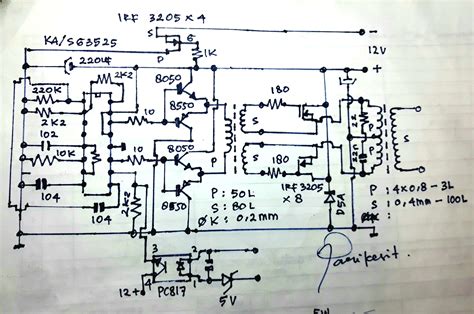 IRF 3205 x 4
S G
D
1K
-
12V
+
KA/SG3525
220uf
220K
2K2
2K2
102
10K
104
104
10
10
2K2
8050
8550
8050
8550
P
S
S
180
180
IRF 3205
x 8
D5A
P
P
S
P : 50L
S : 80L
ØK : 0,2mm
P : 4x0,8 - 3L
S : 0,4mm - 100L
ØK :
3
2
4
1
PC817
12+
5V